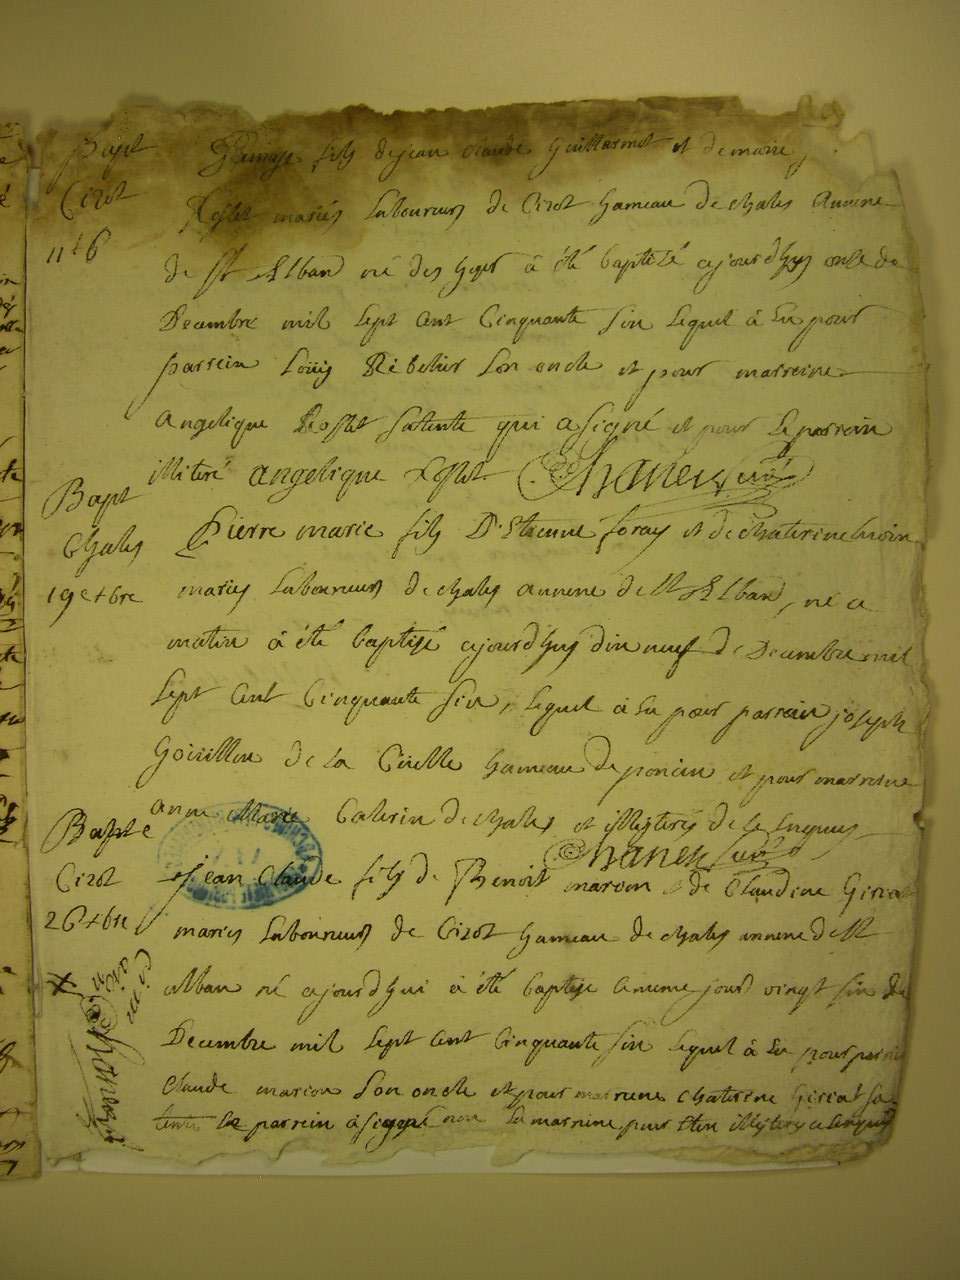 Bapt
Cizot
11 Xb
fils de jean claude Guillarmot et de marie
mariés Laboureurs de Cizot hameau de chales annene
de St Alban né des hyer à été baptizé ajourdhuy onse de
Decembre mil sept cent Cinquante six lequel à eu pour
parrein Loüis Rebelier son oncle et pour marreine
angelique Rostet sa tente qui a signé et pour le parrein
illiteré angelique Rostet Chanen curé
Bapt
Chales
19e xbre
Pierre marie fils D'Etienne foray et de Chaterine
mariés Laboureurs de chales annene de St Alban, né ce
matin à été baptisé ajourdhuy dix neuf de Decembre mil
sept cent Cinquante six, lequel à eu pour parrein joseph
Goiuillon de la Cueille hameau de poncin et pour marreine
anne Marie Caterin de chales et illyterés de ce enquis
Chanen curé
Bapte
Cizot
26 xbre
jean Claude fils de Benoit marion et de Claudine Geriat
mariés Laboureurs de Cizot hameau de chales annene de St
Alban né ajourdhui à été baptisé le meme jour vingt six de
Decembre mil sept cent Cinquante six lequel à eu pour parrein
Claude marion son oncle et pour marreine chaterine Geriat sa
tente le parrein à signé non la marreine pour etre illyterée ce enquis
marion
Chanen